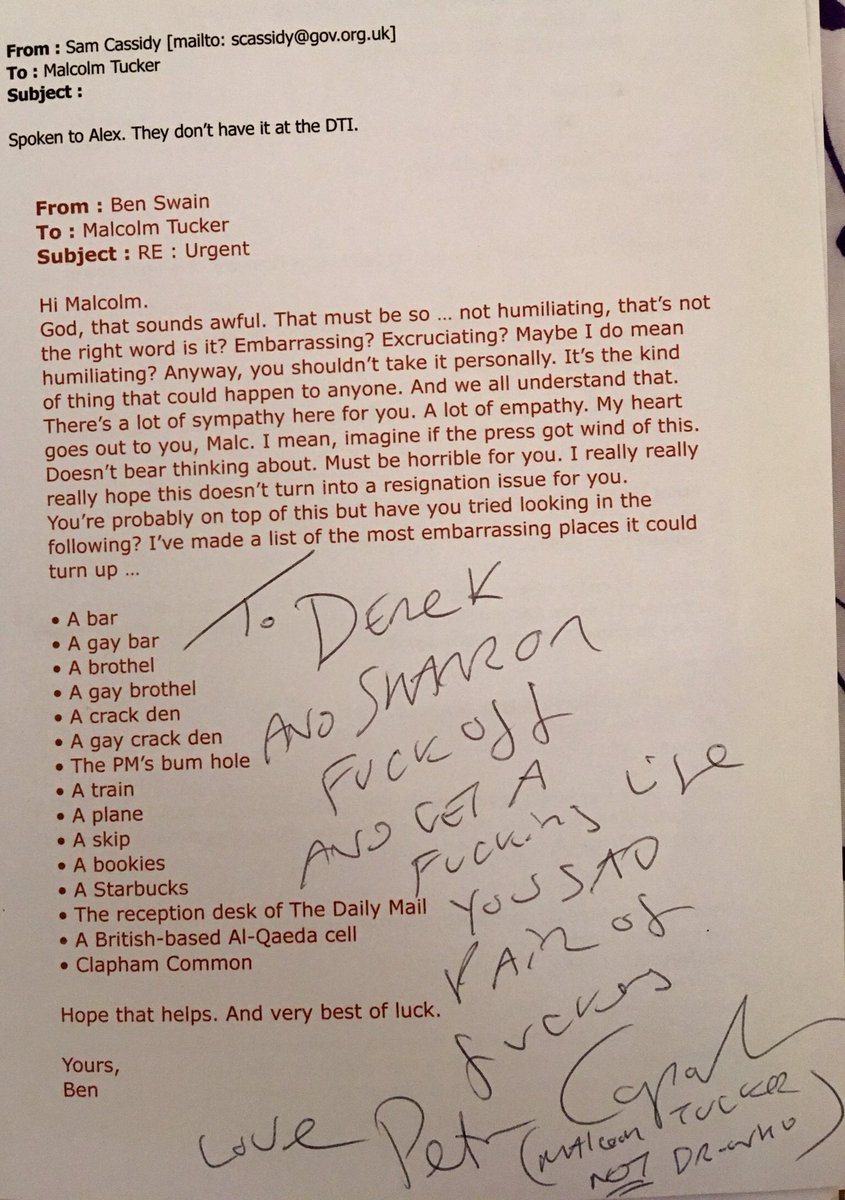 From : Sam Cassidy [mailto: scassidy@gov.org.uk]
To : Malcolm Tucker
Subject :
Spoken to Alex. They don't have it at the DTI.
From : Ben Swain
To : Malcolm Tucker
Subject : RE : Urgent
Hi Malcolm.
God, that sounds awful. That must be so ... not humiliating, that's not
the right word is it? Embarrassing? Excruciating? Maybe I do mean
humiliating? Anyway, you shouldn't take it personally. It's the kind
of thing that could happen to anyone. And we all understand that.
There's a lot of sympathy here for you. A lot of empathy. My heart
goes out to you, Malc. I mean, imagine if the press got wind of this.
Doesn't bear thinking about. Must be horrible for you. I really really
really hope this doesn't turn into a resignation issue for you.
You're probably on top of this but have you tried looking in the
following? I've made a list of the most embarrassing places it could
turn up ...
• A bar
• A gay bar
• A brothel
• A gay brothel
• A crack den
• A gay crack den
• The PM's bum hole
• A train
• A plane
• A skip
• A bookies
• A Starbucks
• The reception desk of The Daily Mail
• A British-based Al-Qaeda cell
• Clapham Common
Hope that helps. And very best of luck.
Yours,
Ben
To DEREK
AND SHARON
FUCK OFF
AND GET A
FUCKING LIFE
YOU SAD
PAIR OF
FUCKERS
LOVE Peter Capaldi
(MALCOLM TUCKER
NOT DR-WHO)